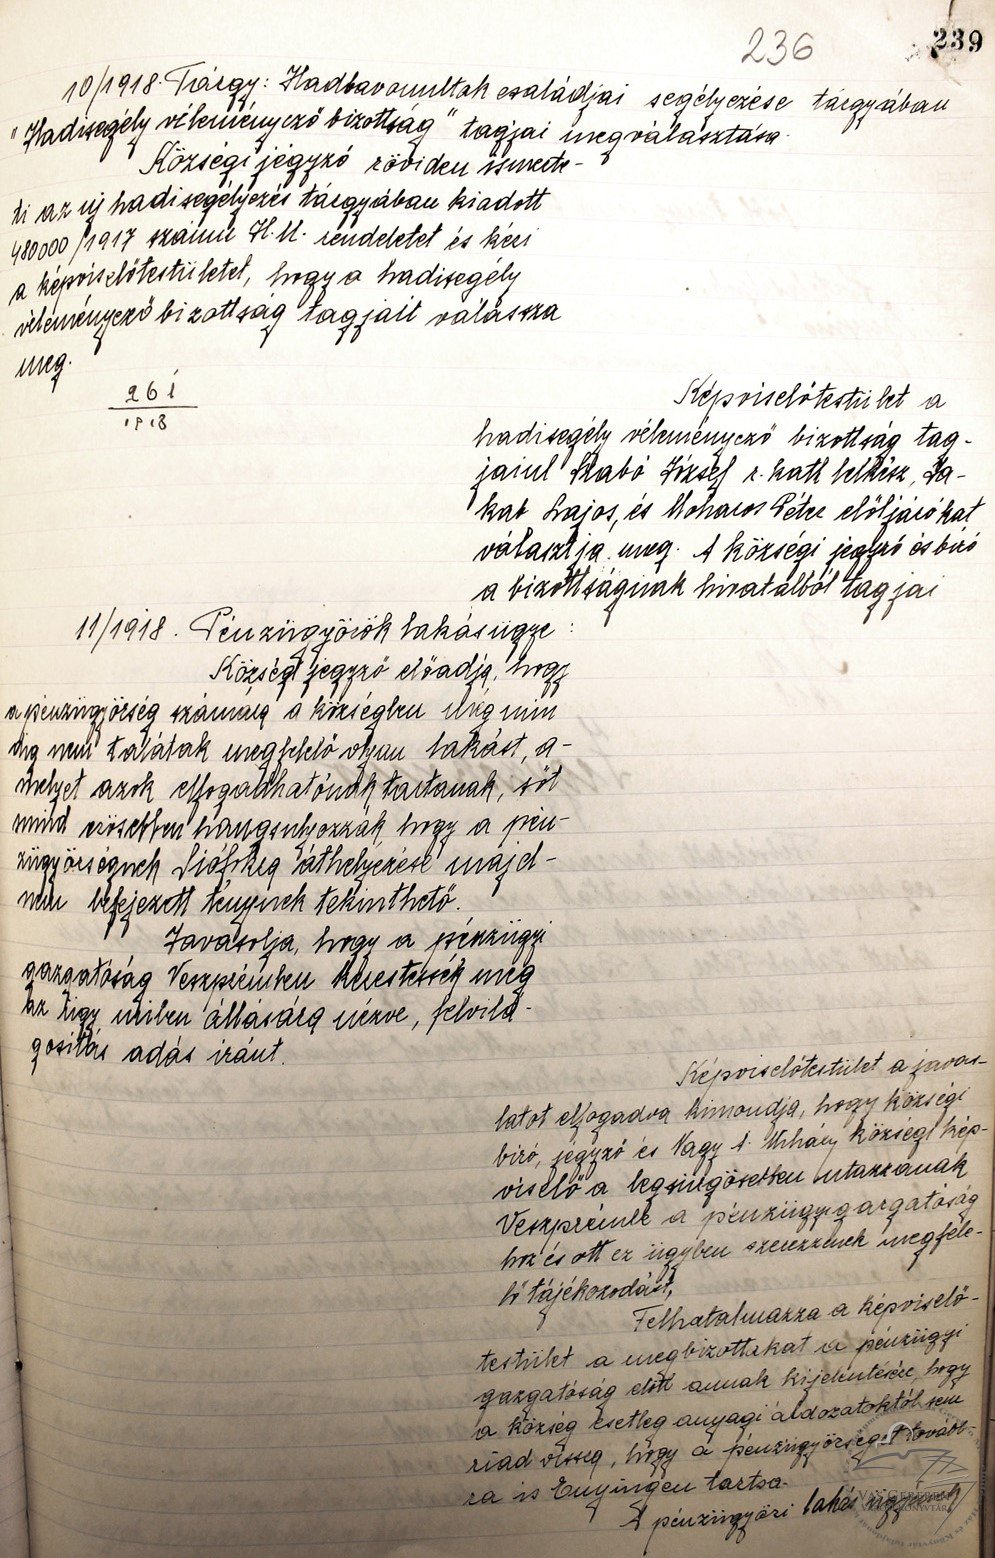 236
239
10/1918. Tárgy: Hadbavonultak családjai segélyezése tárgyában
"Hadisegély véleményező bizottság" tagjai megválasztása.
Községi jegyző röviden ismerte-
ti az uj hadisegélyezés tárgyában kiadott
480000/1917 számu H.M. rendeletet és kéri
a képviselőtestületet, hogy a hadisegély
véleményező bizottság tagjait válassza
meg.
261
1918
Képviselőtestület a
hadisegély véleményező bizottság tag-
jaiul Szabó József r. kath lelkész, Ja-
kab Lajos, és Moharos Péter előljárókat
választja meg. A községi jegyző és biró
a bizottságnak hivatalból tagjai
11/1918. Pénzügyőrök lakásügye:
Községi jegyző előadja, hogy
a pénzügyőrség számára a községben még min
dig nem találtak megfelelő olyan lakást, a-
melyet azok elfogadhatónak tartanak, sőt
mind erősebben hangsulyozzák hogy a pén-
zügyőrségnek Siófokra áthelyezése majd-
nem befejezett ténynek tekinthető.
Javasolja, hogy a pénzügyi
gazgatóság Veszprémben kerestessék meg
az ügy miben állására nézve, felvilá-
gositás adás iránt.
Képviselőtestület a javas-
latot elfogadva kimondja, hogy községi
biró, jegyző és Nagy A. Mihály községi kép-
viselő a legsürgősebben utazzanak
Veszprémbe a pénzügyigazgatóság
hoz és ott ez ügyben szerezzenek megfele-
lő tájékozodást,
Felhatalmazza a képviselő-
testület a megbizottakat a pénzügyi
gazgatóság előtt annak kijelentésére, hogy
a község esetleg anyagi áldozatoktól sem
riad vissza, hogy a pénzügyőrséget továb-
ra is Enyingen tartsa.
A pénzügyőri lakás ügyének